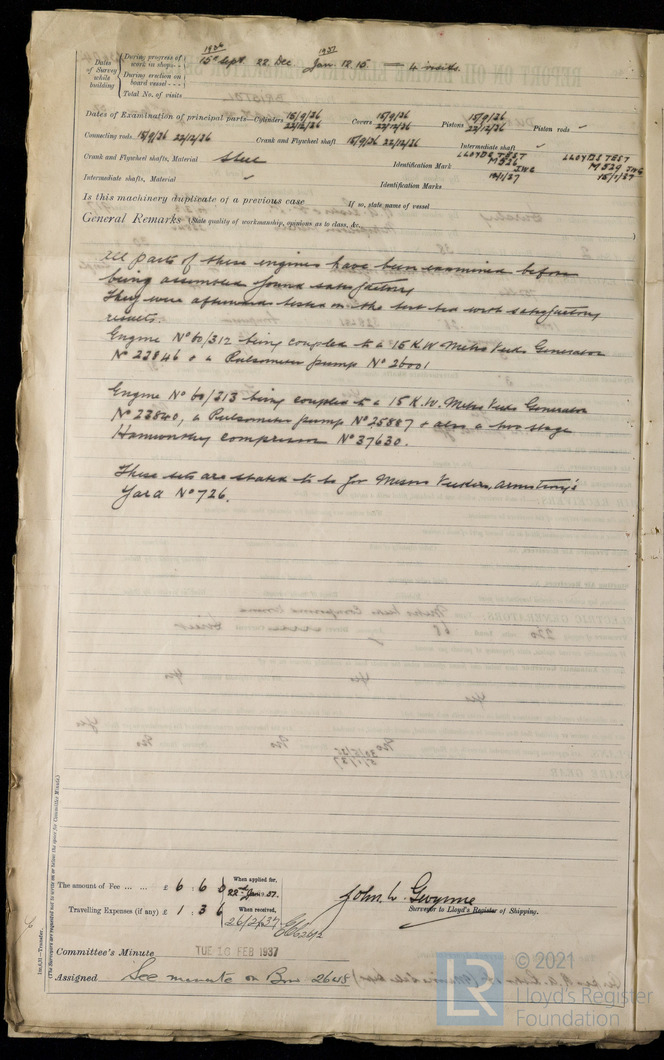 1936 1937
Dates of Survey while building
During progress of work in shops - - 15th Sept 22 Dec Jan. 12. 15 — 4 visits.
During erection on board vessel - - -
Total No. of visits
Dates of Examination of principal parts—Cylinders 15/9/36 22/12/36 Covers 15/9/36 22/12/36 Pistons 15/9/36 22/12/36 Piston rods ✓
Connecting rods 15/9/36 22/12/36 Crank and Flywheel shaft 15/9/36 22/12/36 Intermediate shaft ✓
Crank and Flywheel shafts, Material Steel Identification Mark LLOYDS TEST M526 JWG 12/1/37 LLOYDS TEST M529 JWG 15/1/37
Intermediate shafts, Material ✓ Identification Marks
Is this machinery duplicate of a previous case If so, state name of vessel
General Remarks (State quality of workmanship, opinions as to class, &c.
All parts of these engines have been examined before
being assembled found satisfactory
They were afterwards tested on the test bed with satisfactory
results.
Engine No 60/312 being coupled to a 15 K.W Metro Vicks Generator
No 22846 & a Pulsometer pump No 26001
Engine No 60/313 being coupled to a 15 K.W. Metro Vicks Generator
No 22840, a Pulsometer pump No 25887 & also a two stage
Hamworthy compressor No 37630.
These sets are stated to be for Messrs Vickers, Armstrong's
Yard No 726.
The amount of Fee ... ... £ 6 : 6 : 0 When applied for, 22nd Jan 1937.
Travelling Expenses (if any) £ 1 : 3 : 6 When received, 26/2/37
John W. Gwynne
Surveyor to Lloyd's Register of Shipping.
Committee's Minute TUE 16 FEB 1937
Assigned See minute on
1m,8,31—Transfer.
(The Surveyors are requested not to write on or below the space for Committee Minute.)
© 2021
LR
Lloyd's Register
Foundation